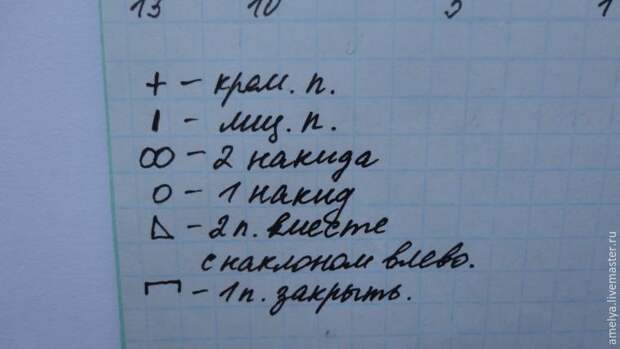 13 10 5 1
+ - кром. п.
I - лиц. п.
OO - 2 накида
O - 1 накид
◺ - 2 п. вместе
с наклоном влево.
⊓ - 1 п. закрыть.
amelya.livemaster.ru